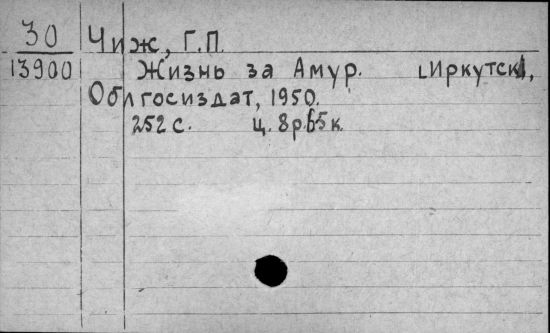 30 Чиж, Г.П.
13900 Жизнь за Амур. [Иркутск],
Облгосиздат, 1950.
252 с. ц. 8р.65к.